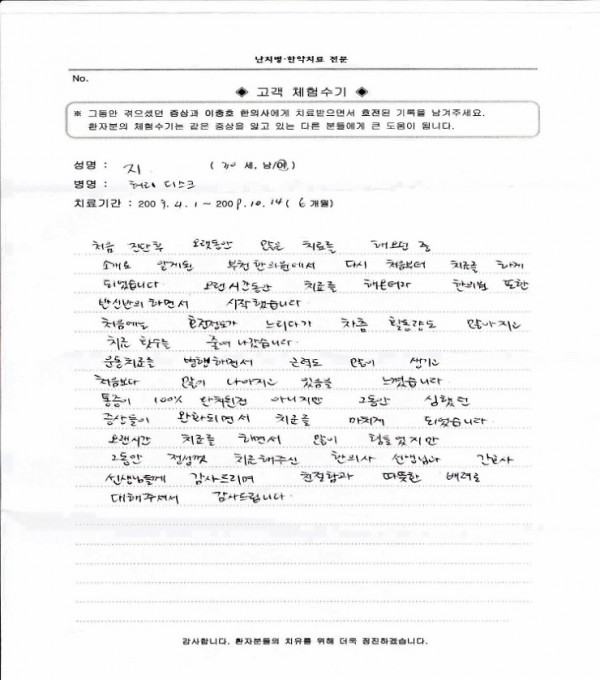 난치병·한약치료 전문
No.
◈ 고객 체험수기 ◈
※ 그동안 겪으셨던 증상과 이종호 한의사에게 치료받으면서 호전된 기록을 남겨주세요.
환자분의 체험수기는 같은 증상을 앓고 있는 다른 분들에게 큰 도움이 됩니다.
성명 : 지. ( 30 세, 남/여 )
병명 : 허리 디스크
치료기간 : 2009. 4. 1 ~ 2009. 10. 14 ( 6 개월)
처음 진단후 오랫동안 많은 치료를 해오던 중
소개로 알게된 부천한의원에서 다시 처음부터 치료를 하게
되었습니다. 오랜시간동안 치료를 해온터라 한의원 또한
반신반의 하면서 시작했습니다.
처음에는 호전정도가 느리다가 차츰 활동량도 많아지고
치료 횟수는 줄어 나갔습니다.
운동치료를 병행하면서 근력도 많이 생기고
처음보다 많이 나아지고 있음을 느꼈습니다.
통증이 100% 완치된건 아니지만 그동안 심했던
증상들이 완화되면서 치료를 마치게 되었습니다.
오랜시간 치료를 하면서 많이 힘들었지만
그동안 정성껏 치료해주신 한의사 선생님과 간호사
선생님들께 감사드리며 친절함과 따뜻한 배려로
대해주셔서 감사드립니다.
감사합니다. 환자분들의 치유를 위해 더욱 정진하겠습니다.